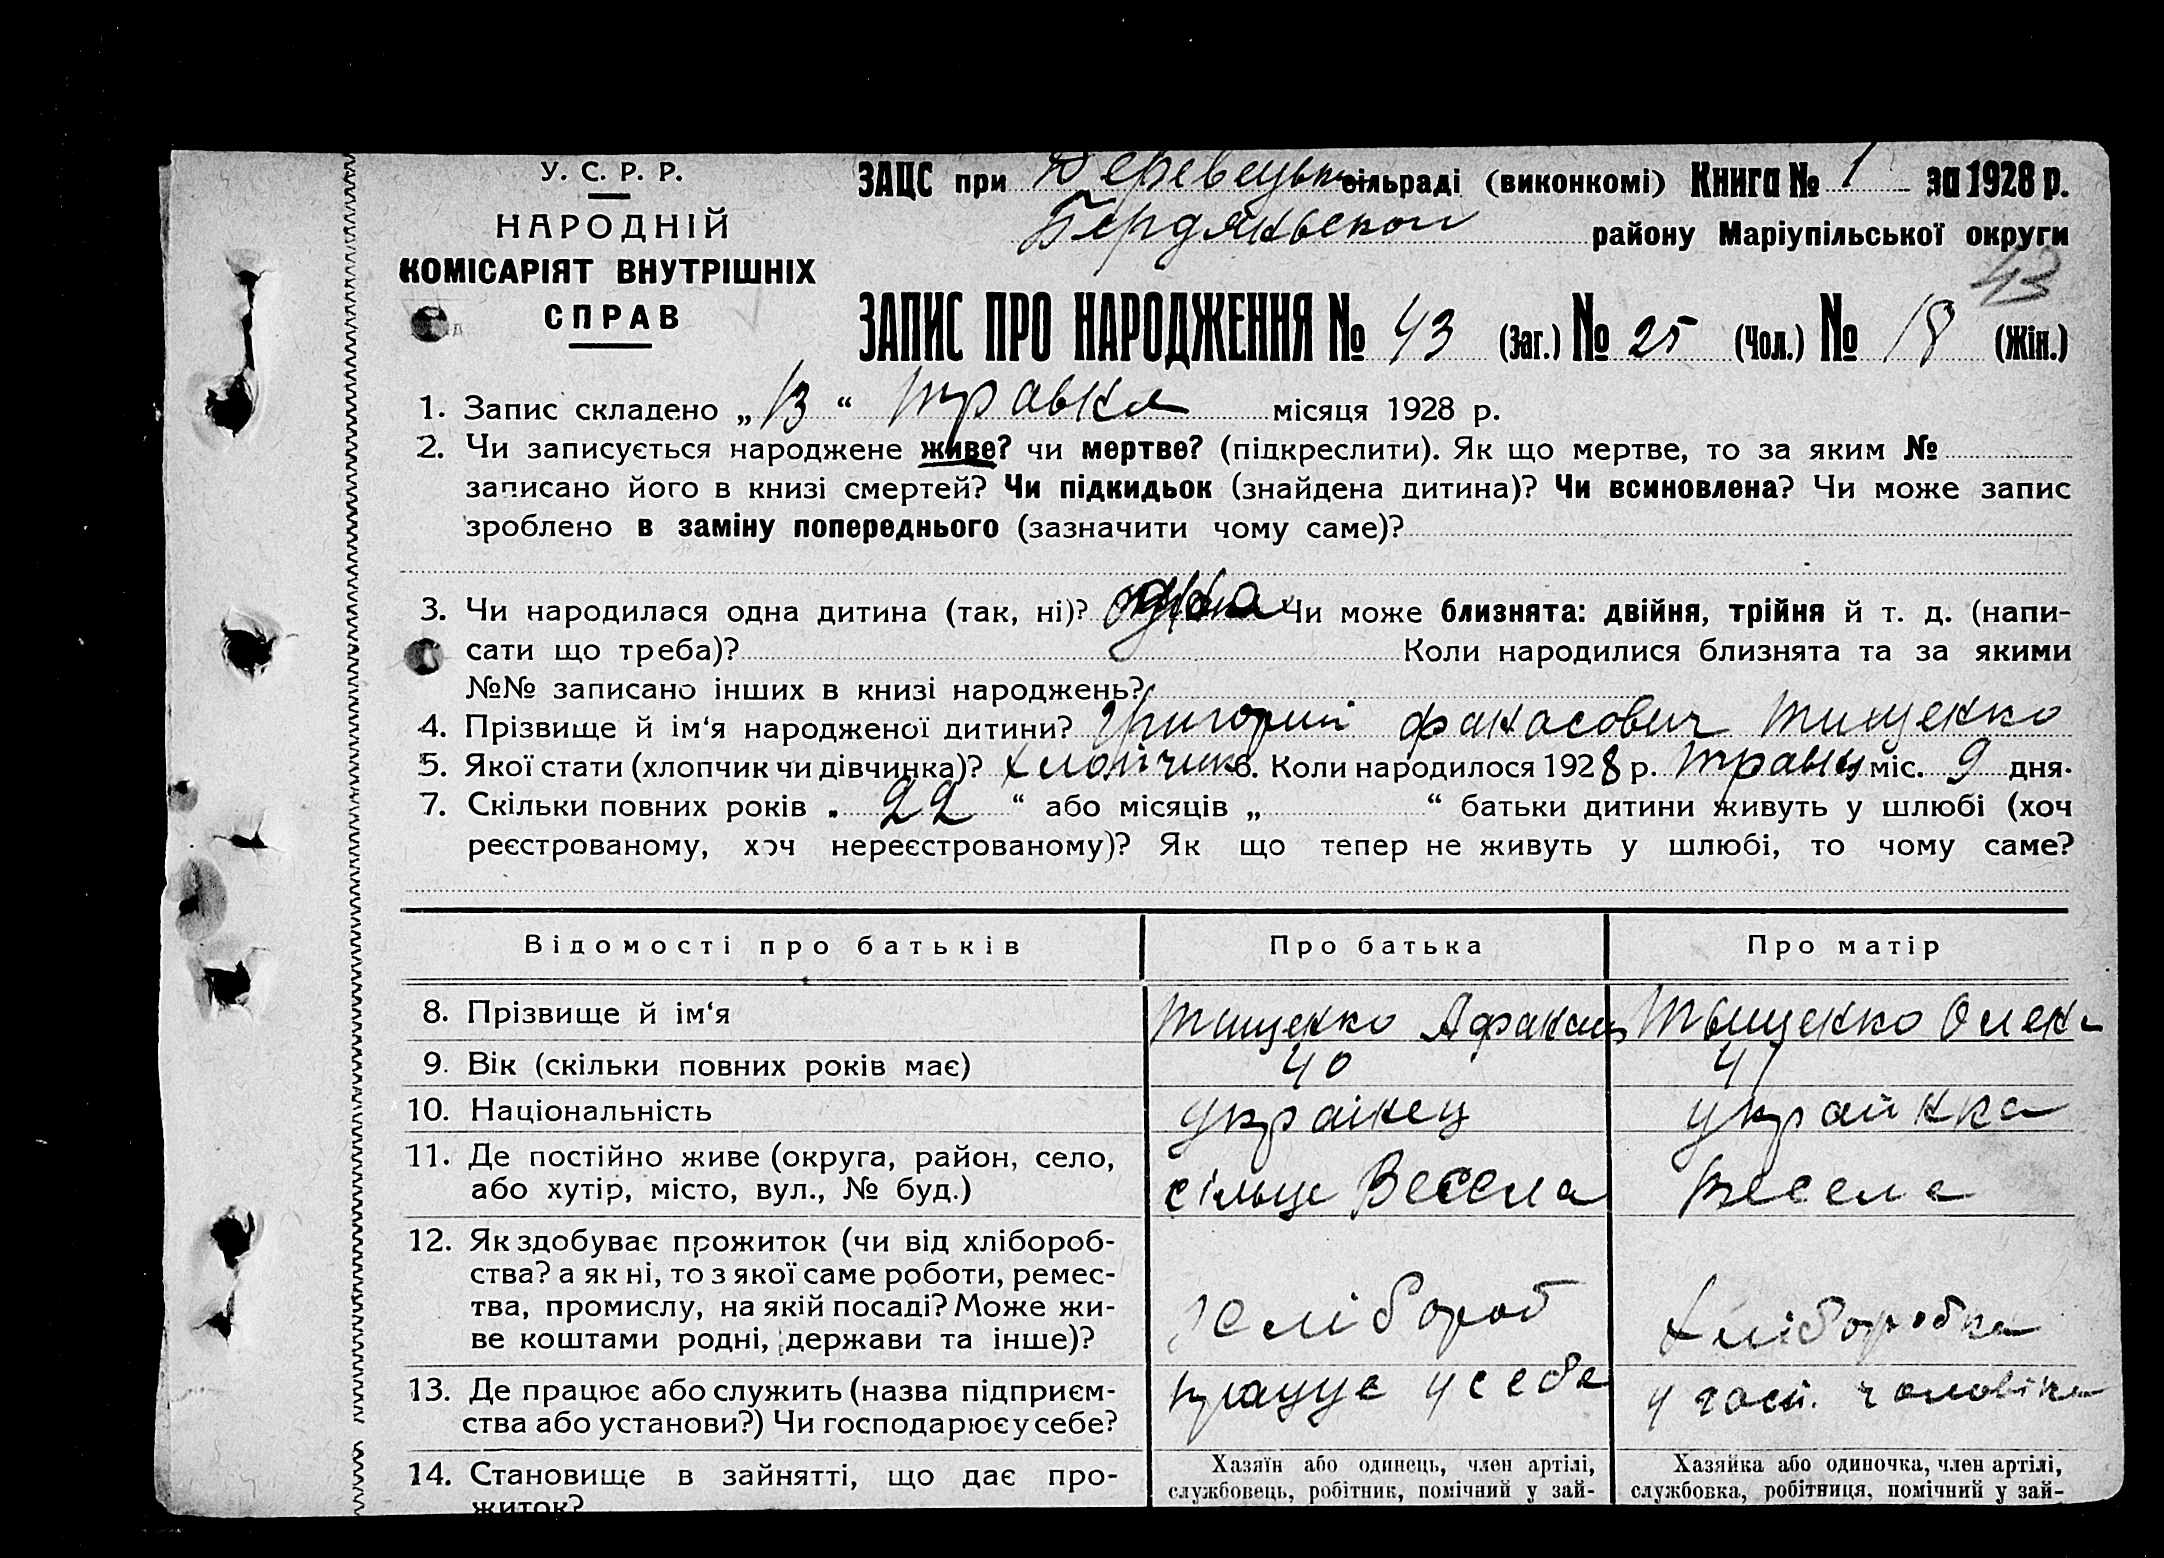 У. С. Р. Р.
НАРОДНІЙ
КОМІСАРІЯТ ВНУТРІШНІХ
СПРАВ
ЗАЦС при Деревецьк сільраді (виконкомі) Книга № 1 за 1928 р.
Бердянської району Маріупільської округи
43
ЗАПИС ПРО НАРОДЖЕННЯ № 43 (Заг.) № 25 (Чол.) № 18 (Жін.)
1. Запис складено „ 13 “ травня місяця 1928 р.
2. Чи записується народжене живе? чи мертве? (підкреслити). Як що мертве, то за яким №
записано його в книзі смертей? Чи підкидьок (знайдена дитина)? Чи всиновлена? Чи може запис
зроблено в заміну попереднього (зазначити чому саме)?
3. Чи народилася одна дитина (так, ні)? одна Чи може близнята: двійня, трійня й т. д. (напи-
сати що треба)? Коли народилися близнята та за якими
№№ записано інших в книзі народжень?
4. Прізвище й ім‘я народженої дитини? Григорий Фанасович Тищенко
5. Якої стати (хлопчик чи дівчинка)? хлопчик 6. Коли народилося 1928 р. травня міс. 9 дня.
7. Скільки повних років „ 22 “ або місяців „ “ батьки дитини живуть у шлюбі (хоч
реєстрованому, хоч нереєстрованому)? Як що тепер не живуть у шлюбі, то чому саме?
Відомості про батьків Про батька Про матір
8. Прізвище й ім‘я Тищенко Афанас Тыщенко Олек
9. Вік (скільки повних років має) 40 41
10. Національність украінец украйнка
11. Де постійно живе (округа, район, село,
або хутір, місто, вул., № буд.) сільце Весела Весела
12. Як здобуває прожиток (чи від хлібороб-
ства? а як ні, то з якої саме роботи, ремес-
тва, промислу, на якій посаді? Може жи-
ве коштами родні, держави та інше)? хлібороб хліборобка
13. Де працює або служить (назва підприєм-
ства або установи?) Чи господарює у себе? працує у себе у госп. чоловіка
14. Становище в зайнятті, що дає про-
житок?
Хазяїн або одинець, член артілі,
службовець, робітник, помічний у зай-
Хазяйка або одиночка, член артілі,
службовка, робітниця, помічний у зай-